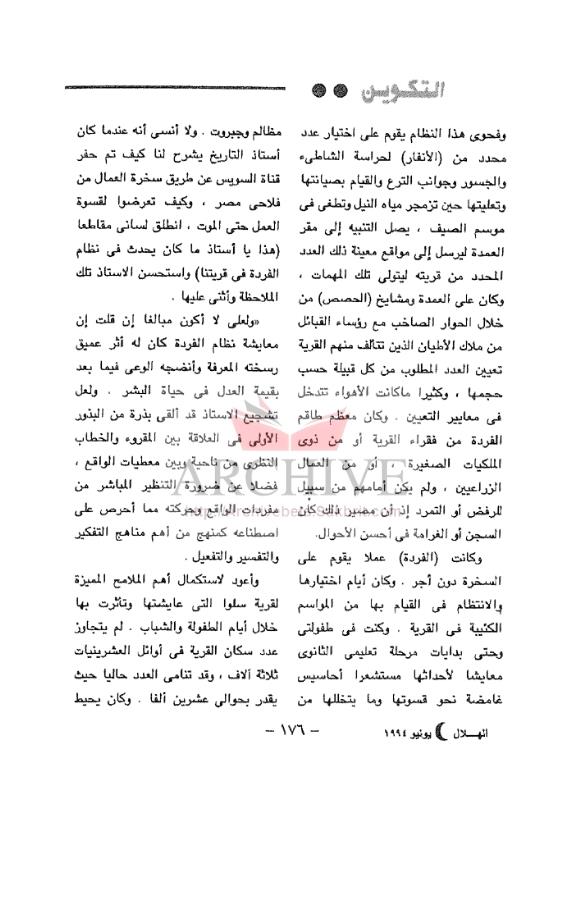 التكوين
وفحوى هذا النظام يقوم على اختيار عدد
محدد من (الأنفار) لحراسة الشاطىء
والجسور وجوانب الترع والقيام بصيانتها
وتعليتها حين تزمجر مياه النيل وتطغى فى
موسم الصيف ، يصل التنبيه إلى مقر
العمدة ليرسل إلى مواقع معينة ذلك العدد
المحدد من قريته ليتولى تلك المهمات ،
وكان على العمدة ومشايخ (الحصص) من
خلال الحوار الصاخب مع رؤساء القبائل
من ملاك الأطيان الذين تتألف منهم القرية
تعيين العدد المطلوب من كل قبيلة حسب
حجمها ، وكثيرا ماكانت الأهواء تتدخل
فى معايير التعيين . وكان معظم طاقم
الفردة من فقراء القرية أو من ذوى
الملكيات الصغيرة ، أو من العمال
الزراعيين ، ولم يكن أمامهم من سبيل
للرفض أو التمرد إذ أن مصير ذلك كان
السجن أو الغرامة فى أحسن الأحوال.
وكانت (الفردة) عملا يقوم على
السخرة دون أجر . وكان أيام اختيارها
والانتظام فى القيام بها من المواسم
الكئيبة فى القرية . وكنت فى طفولتى
وحتى بدايات مرحلة تعليمى الثانوى
معايشا لأحداثها مستشعرا أحاسيس
غامضة نحو قسوتها وما يتخللها من
مظالم وجبروت . ولا أنسى أنه عندما كان
أستاذ التاريخ يشرح لنا كيف تم حفر
قناة السويس عن طريق سخرة العمال من
فلاحى مصر ، وكيف تعرضوا لقسوة
العمل حتى الموت ، انطلق لسانى مقاطعا
(هذا يا أستاذ ما كان يحدث فى نظام
الفردة فى قريتنا) واستحسن الاستاذ تلك
الملاحظة وأثنى عليها .
«ولعلى لا أكون مبالغا إن قلت إن
معايشة نظام الفردة كان له أثر عميق
رسخته المعرفة وأنضجه الوعى فيما بعد
بقيمة العدل فى حياة البشر . ولعل
تشجيع الاستاذ قد ألقى بذرة من البذور
الأولى فى العلاقة بين المقروء والخطاب
النظرى من ناحية وبين معطيات الواقع ،
فضلا عن ضرورة التنظير المباشر من
مفردات الواقع وحركته مما أحرص على
اصطناعه كمنهج من أهم مناهج التفكير
والتفسير والتفعيل .
وأعود لاستكمال أهم الملامح المميزة
لقرية سلوا التى عايشتها وتأثرت بها
خلال أيام الطفولة والشباب . لم يتجاوز
عدد سكان القرية فى أوائل العشرينيات
ثلاثة آلاف ، وقد تنامى العدد حاليا حيث
يقدر بحوالى عشرين ألفا . وكان يحيط
ARCHIVE
الهلال يونيو ١٩٩٤
- ١٧٦ -